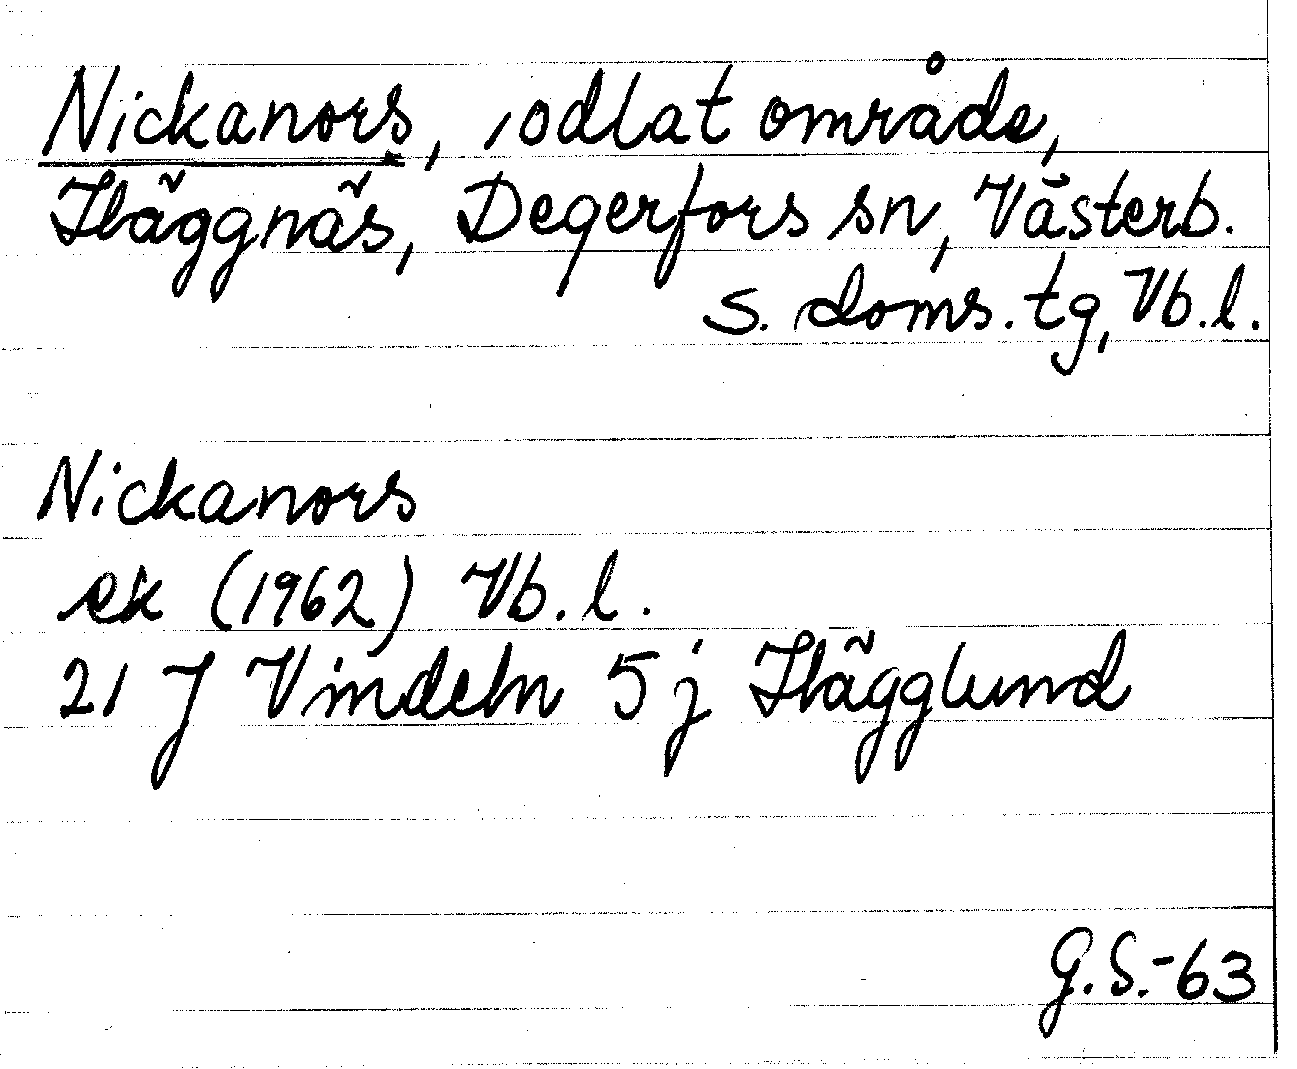 Nickanors, odlat område,
Häggnäs, Degerfors sn, Västerb.
s. doms. tg, Vb. l.
Nickanors
ek (1962) Vb. l.
21 J Vindeln 5 j Hägglund
G.S.-63